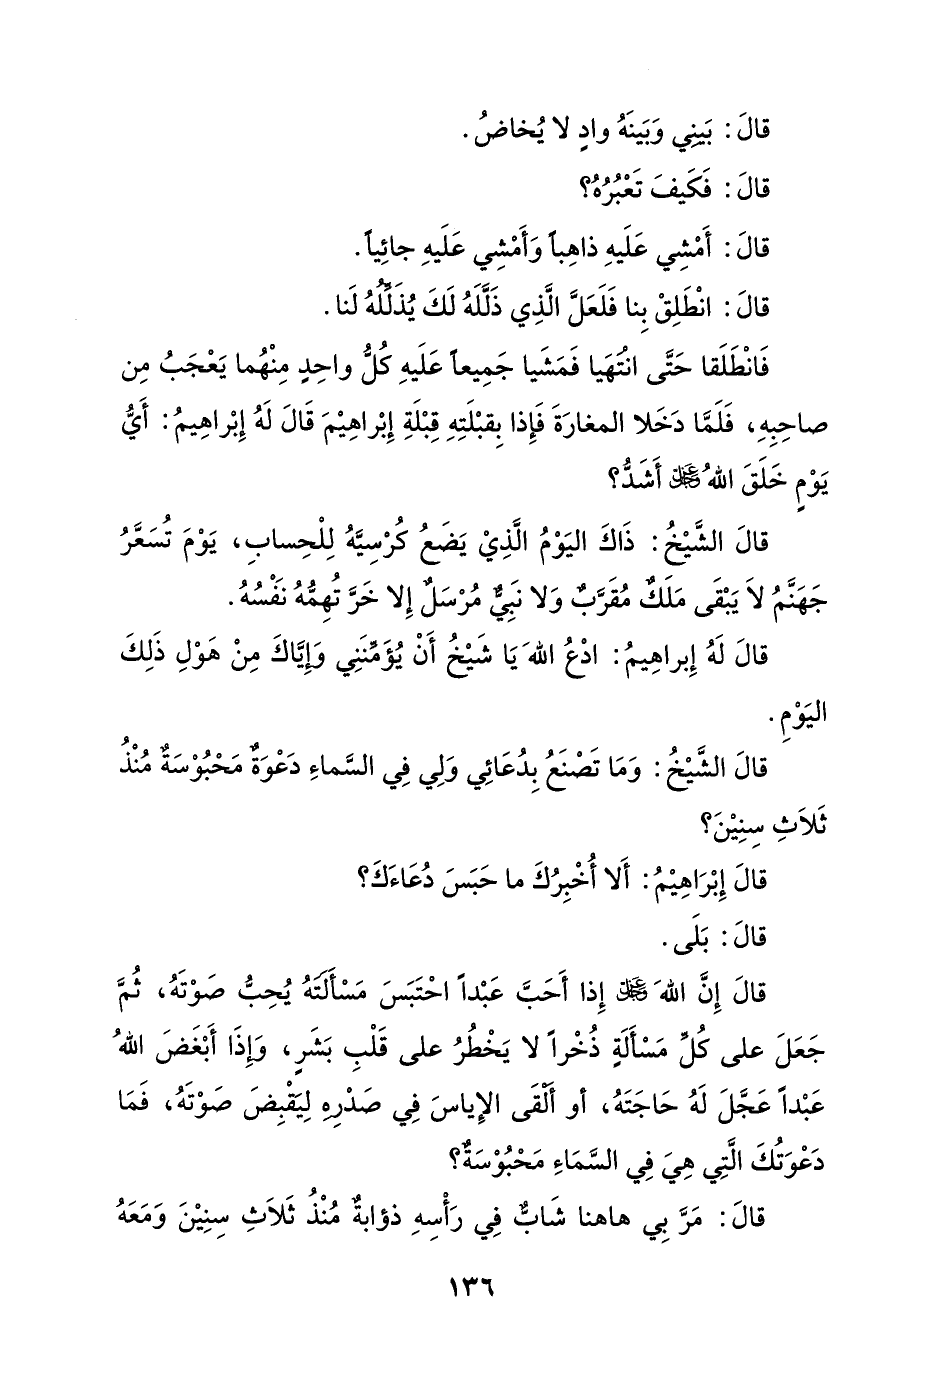 قالَ: بَينِي وَبَينَهُ وادٍ لا يُخاضُ.
قالَ: فَكَيفَ تَعْبُرُهُ؟
قالَ: أَمْشِي عَلَيهِ ذاهِباً وَأَمْشِي عَلَيهِ جائِياً.
قالَ: انْطَلِقْ بِنا فَلَعَلَّ الَّذِي ذَلَّلَهُ لَكَ يُذَلِّلُهُ لَنا.
فَانْطَلَقا حَتَّى انْتُهَيا فَمَشَيا جَمِيعاً عَلَيهِ كُلُّ واحِدٍ مِنْهُما يَعْجَبُ مِن
صاحِبِهِ، فَلَمَّا دَخَلا المغارَةَ فَإِذا بِقبْلَتِهِ قِبْلَةِ إِبْراهِيْمَ قَالَ لَهُ إِبْراهِيمُ: أَيُّ
يَوْمٍ خَلَقَ اللهُ ﷻ أَشَدُّ؟
قالَ الشَّيْخُ: ذَاكَ اليَوْمُ الَّذِيْ يَضَعُ كُرْسِيَّهُ لِلْحِسابِ، يَوْمَ تُسَعَّرُ
جَهَنَّمُ لاَ يَبْقَى مَلَكٌ مُقَرَّبٌ وَلا نَبِيٌّ مُرْسَلٌ إِلا خَرَّ تُهِمُّهُ نَفْسُهُ.
قالَ لَهُ إِبراهِيمُ: ادْعُ اللهَ يَا شَيْخُ أَنْ يُؤَمِّنَنِي وَإِيَّاكَ مِنْ هَوْلِ ذَلِكَ
اليَوْمِ.
قالَ الشَّيْخُ: وَمَا تَصْنَعُ بِدُعَائِي وَلِي فِي السَّماءِ دَعْوَةٌ مَحْبُوْسَةٌ مُنْذُ
ثَلاَثِ سِنِيْنَ؟
قالَ إِبْرَاهِيْمُ: أَلا أُخْبِرُكَ ما حَبَسَ دُعَاءَكَ؟
قالَ: بَلَى.
قالَ إِنَّ اللهَ ﷻ إِذا أَحَبَّ عَبْداً احْتَبَسَ مَسْأَلَتَهُ يُحِبُّ صَوْتَهُ، ثُمَّ
جَعَلَ على كُلِّ مَسْأَلَةٍ ذُخْراً لا يَخْطُرُ على قَلْبِ بَشَرٍ، وَإِذَا أَبْغَضَ اللهُ
عَبْداً عَجَّلَ لَهُ حَاجَتَهُ، أو أَلْقَى الإِياسَ فِي صَدْرِهِ لِيَقْبِضَ صَوْتَهُ، فَمَا
دَعْوَتُكَ الَّتِي هِيَ فِي السَّمَاءِ مَحْبُوْسَةٌ؟
قالَ: مَرَّ بِي هاهنا شَابٌّ فِي رَأْسِهِ ذؤابةٌ مُنْذُ ثَلاَثِ سِنِيْنَ وَمَعَهُ
١٣٦